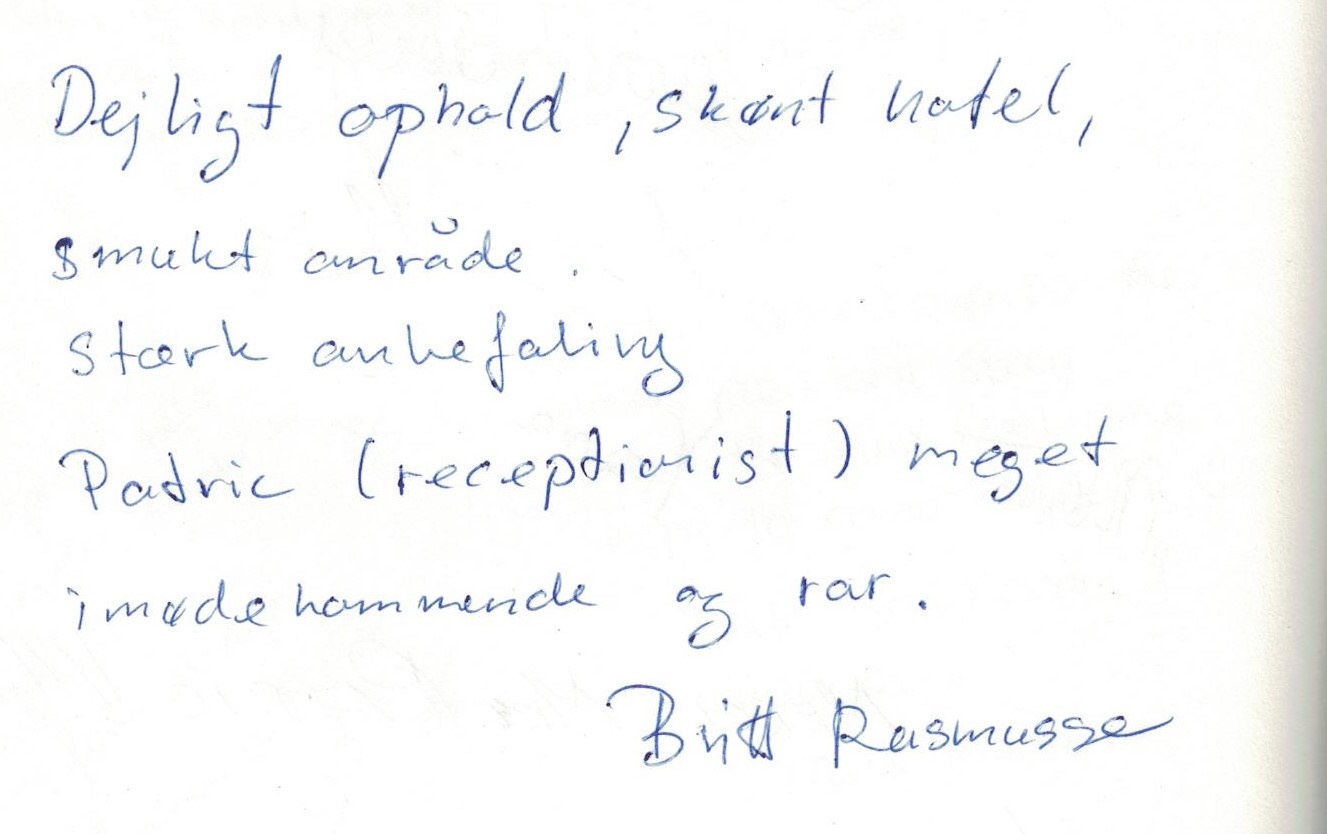 Dejligt ophold, skønt hotel,
smukt område.
Stærk anbefaling
Patric (receptionist) meget
imødekommende og rar.
Britt Rasmusse